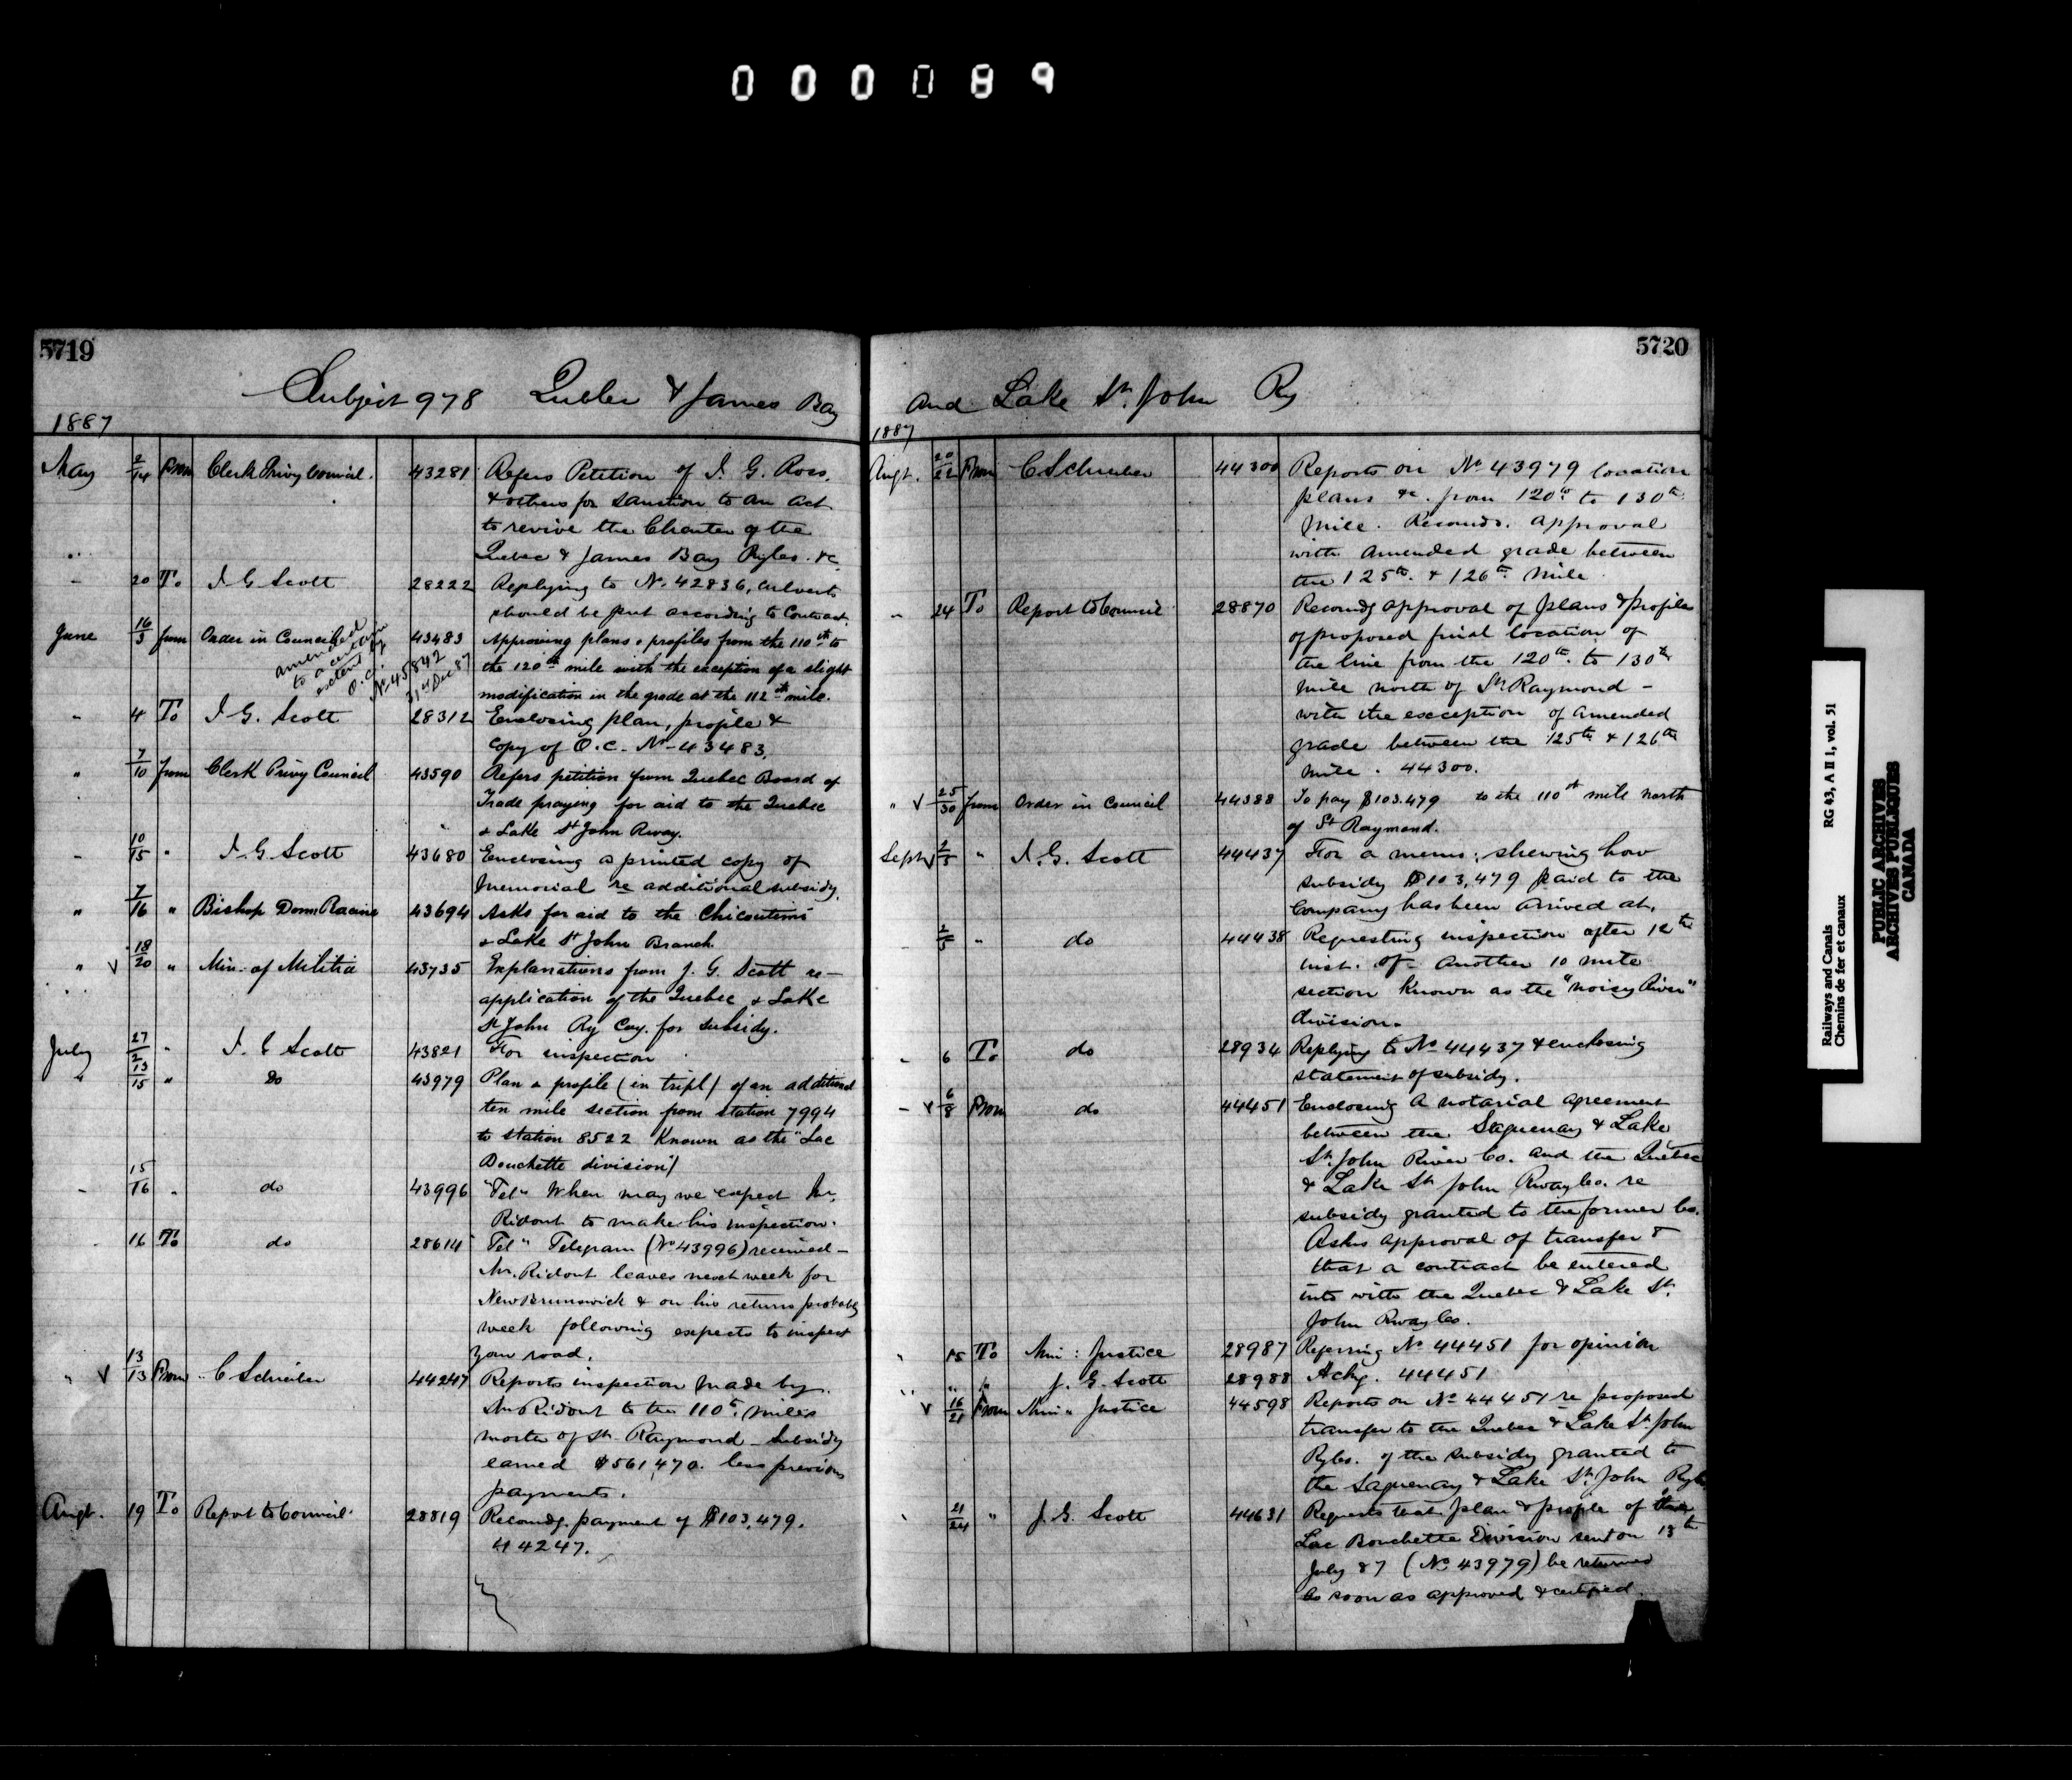 000089
5719
Subject 978 Quebec & James Bay
1887
May 2/14 From Clerk Privy Council. 43281 Refers Petition of J. G. Ross,
& others for sanction to an act
to revive the Charter of the
Quebec & James Bay Rylco. &c
" 20 To J. G. Scott 28222 Replying to No. 42836, culverts
should be put according to Contract.
June 16/3 from Order in Council 43483 Approving plans & profiles from the 110th to
amended to a certain extent by O.C. No 45842 31st Dec 87
the 120th mile with the exception of a slight
modification in the grade at the 112th mile.
" 4 To J. G. Scott 28312 Enclosing plan, profile &
copy of O.C. No 43483.
" 7/10 from Clerk Privy Council 43590 Refers petition from Quebec Board of
Trade praying for aid to the Quebec
& Lake St John Rway.
" 10/15 " J. G. Scott 43680 Enclosing a printed copy of
Memorial re additional subsidy.
" 7/16 " Bishop Dom Racine 43694 Asks for aid to the Chicoutimi
& Lake St John Branch.
" V 18/20 " Min. of Militia 43735 Explanations from J. G. Scott re-
application of the Quebec & Lake
St John Ry Coy. for subsidy.
July 27/2 " J. G Scott 43821 For inspection
" 13/15 " Do 43979 Plan & profile (in tripl) of an additional
ten mile section from station 7994
to station 8522 Known as the "Lac
Bouchette division)
" 15/16 " do 43996 "Tel" When may we expect Mr.
Ridout to make his inspection.
16 To do 28614 "Tel" Telegram (No 43996) received -
Mr. Ridout leaves next week for
New Brunswick & on his return probably
week following expects to inspect
your road.
" V 13/13 From C Schreiber 44247 Reports inspection made by
Mr Ridout to the 110th miles
north of St. Raymond - Subsidy
earned $561,470. less previous
payments.
Augt. 19 To Report to Council. 28819 Recomdg. payment of $103,479.
44247.
5720
And Lake St. John Ry
1887
Augt. 20/22 From C Schreiber 44300 Reports on No 43979 location
plans &c. from 120th to 130th
mile. Recomds. approval
with amended grade between
the 125th & 126th mile
" 24 To Report to Council 28870 Recomdg approval of plans & profiles
of proposed final location of
the line from the 120th to 130th
mile north of St Raymond -
with the exception of amended
grade between the 125th & 126th
mile. 44300.
" V 25/30 from Order in Council 44388 To pay $103.479 to the 110th mile north
of St Raymond.
Sept V 2/3 " J. G. Scott 44437 For a memo: shewing how
subsidy $103,479 paid to the
Company has been arrived at.
" 2/5 " do 44438 Requesting inspection after 12th
inst. of another 10 mile
section known as the "noisy River"
division.
" 6 To do 28934 Replying to No 44437 & enclosing
statement of subsidy.
" V 6/8 From do 44451 Enclosing a notarial agreement
between the Saguenay & Lake
St. John River Co. and the Quebec
& Lake St John Rway Co. re
subsidy granted to the former Co.
Asks approval of transfer &
that a contract be entered
into with the Quebec & Lake St.
John Rway Co.
" 15 To Min: Justice 28987 Referring No 44451 for opinion
" " " J. G. Scott 28988 Ackg. 44451
V 16/21 From Min " Justice 44598 Reports on No 44451 re proposed
transfer to the Quebec & Lake St John
Ryco. of the subsidy granted to
the Saguenay & Lake St. John Ryco
" 21/24 " J. G. Scott 44631 Requests that plan & profile of the
Lac Bouchette Division sent on 13th
July 87 (No 43979) be returned
as soon as approved & certified.
Railways and Canals
Chemins de fer et canaux
RG 43, A II 1, vol. 51
PUBLIC ARCHIVES
ARCHIVES PUBLIQUES
CANADA